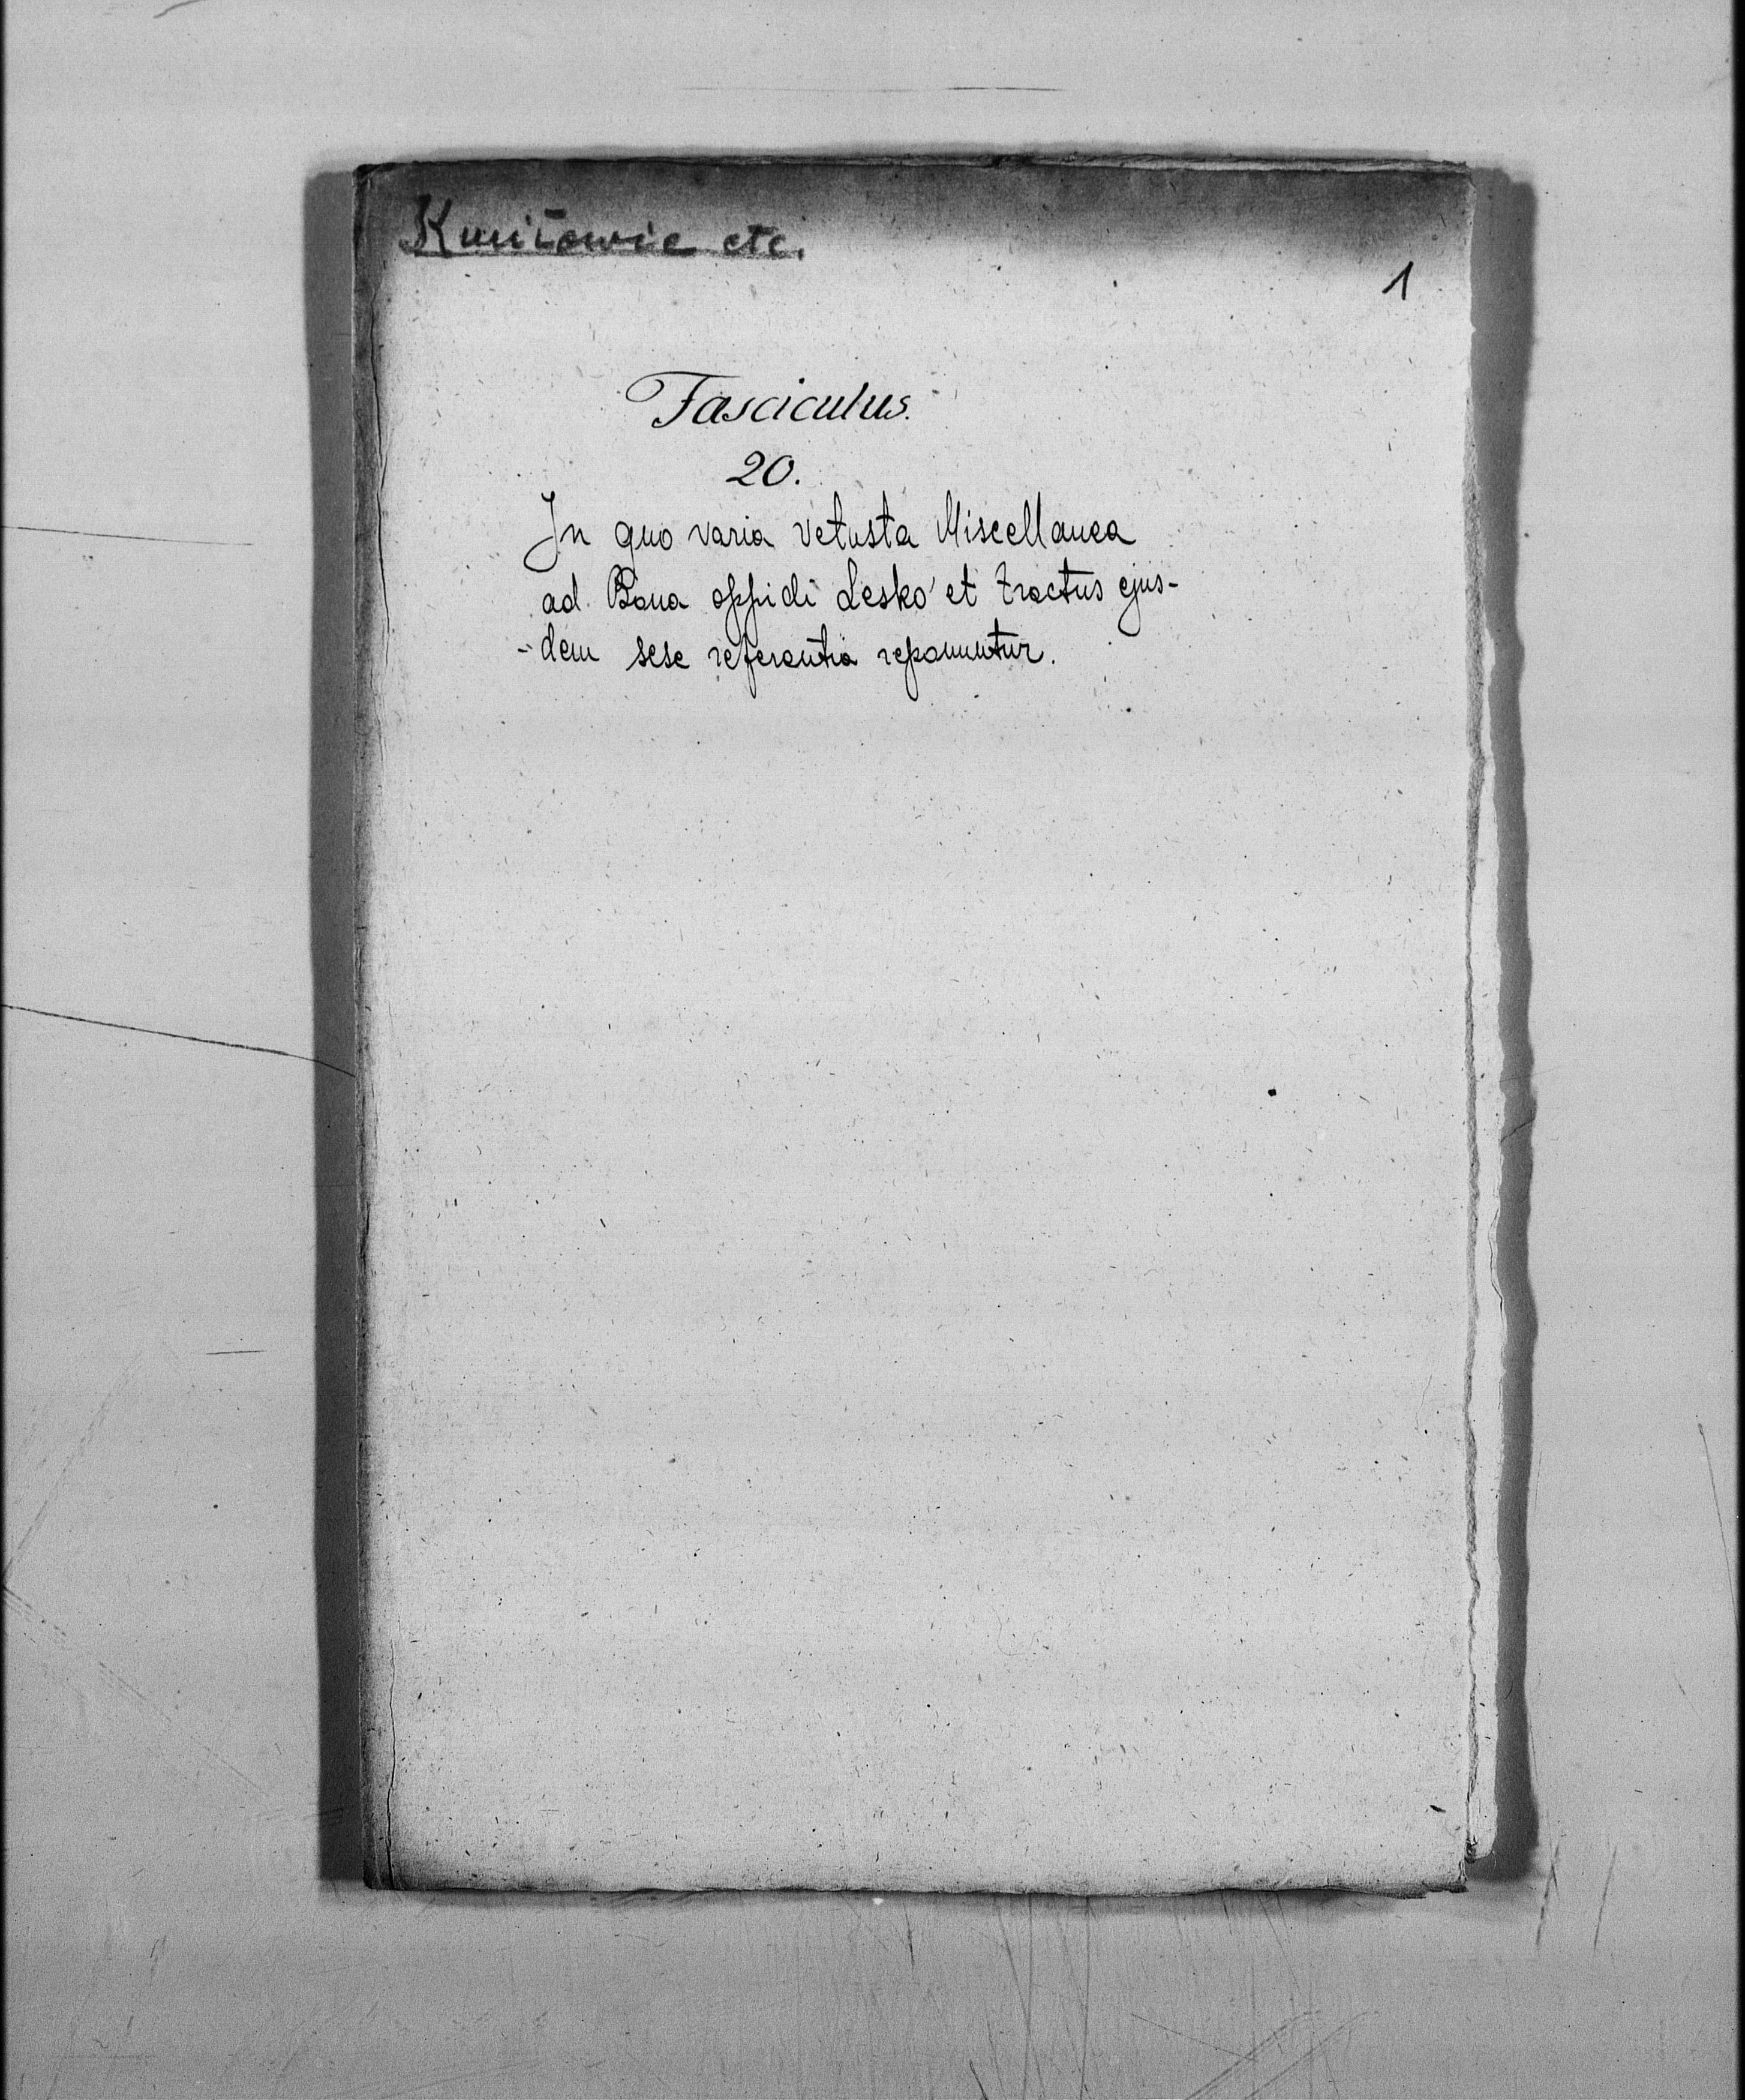 Kmitowie etc.
1
Fasciculus.
20.
In quo varia vetusta Miscellanea
ad Bona oppidi Lesko et tractus ejus-
-dem sese referentia reponuntur.